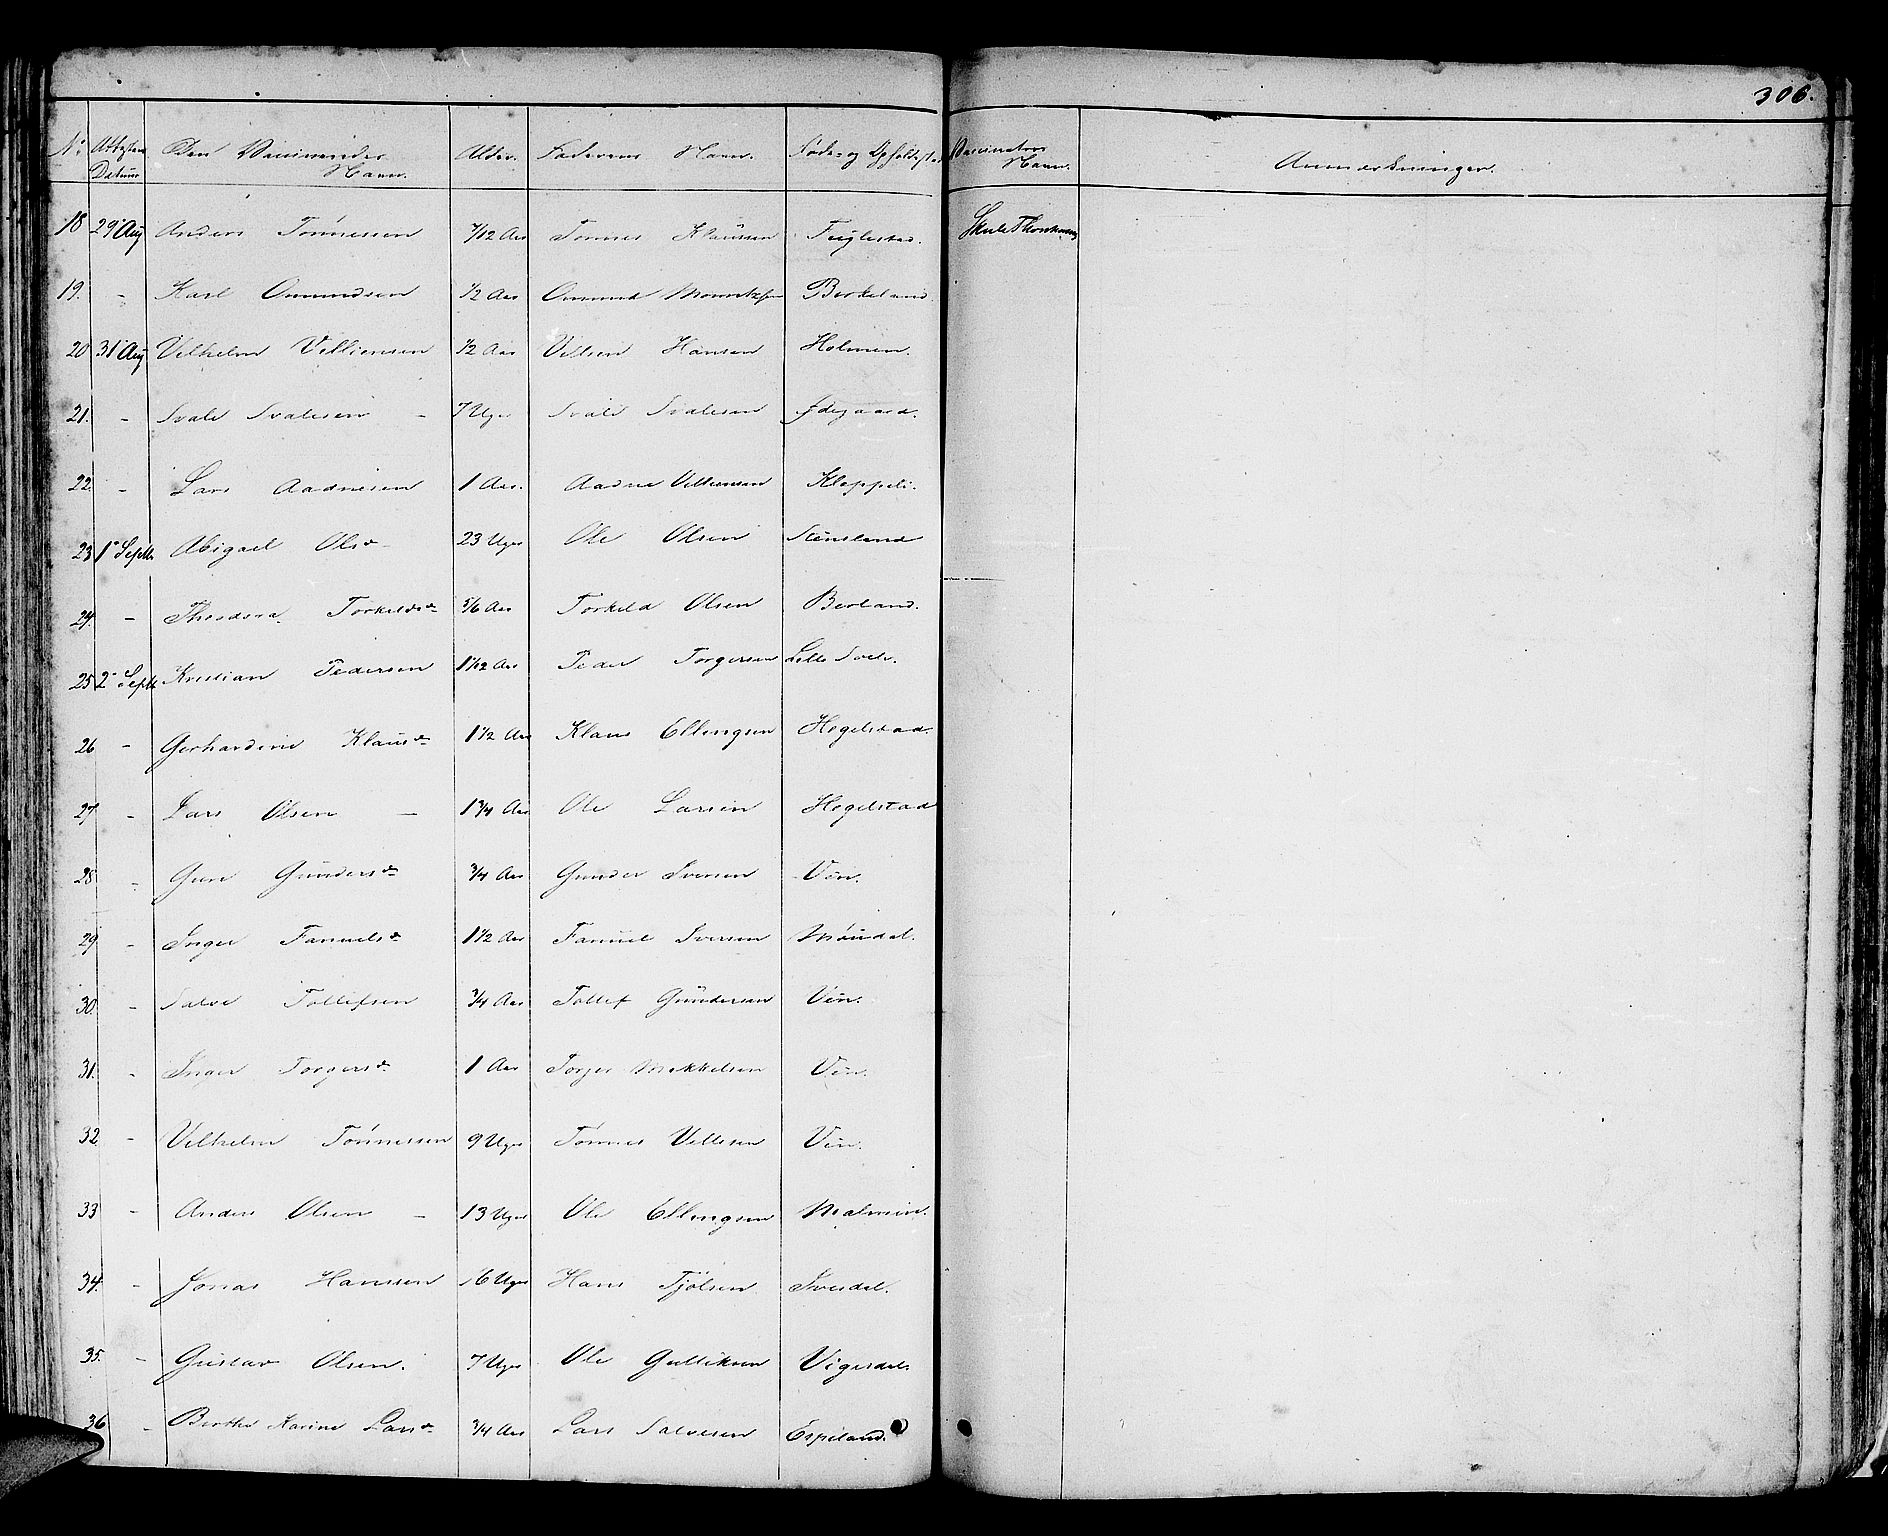 306.
No Attestens Datum Den Vaccineredes Navn. Alder. Faderens Navn. Føde- og Opholdssted Vaccinators Navn. Anmærkninger.
18 29 Aug Anders Tønnessen 7/12 Aar Tønnes Klaussen Fuglestad.
19. - Karl Ommundsen 1/2 Aar Ommund Birkeland.
20 31 Aug Vilhelm Villiensen 1/2 Aar Hansen Holmen.
21. - Svale Svalesen - 7 Uger Svale Svalesen Ødegaard.
22. - Lars Aadnesen 1 Aar. Aadne Villiensen Kloppeli.
23 1 Septb. Abigael Olsd. 23 Uger Ole Olsen Stensland
24. - Theodora Torkildsd. 5/6 Aar Torkild Olsen Berland.
25 2 Septb. Kristian Pedersen 1 1/12 Aar Peder Torgersen Lille Svele.
26 - Gerhardine Klausd. 1 1/2 Aar Klaus Ellingsen Hegelstad.
27 - Lars Olsen - 1 3/4 Aar Ole Larsen Hegelstad
28 - Guri Gundersd. 3/4 Aar Gunder Iversen Vin.
29 - Inger Fanuelsd. 1 1/2 Aar Fanuel Iversen Møndal.
30. - Salve Tollefsen 3/4 Aar Tollef Gundersen Vin.
31. - Inger Torgersd. 1 Aar Torger Mikkelsen Vin.
32 - Vilhelm Tønnessen 9 Uger Tønnes Villesen Vin.
33 - Anders Olsen - 13 Uger Ole Ellingsen Malmein.
34. - Jonas Hanssen 16 Uger Hans Tjølsen Ivesdal.
35. - Gustav Olsen. 7 Uger Ole Gulliksen Vigesdal.
36 - Berthe Karine Larsd. 3/4 Aar Lars Salvesen Espeland.